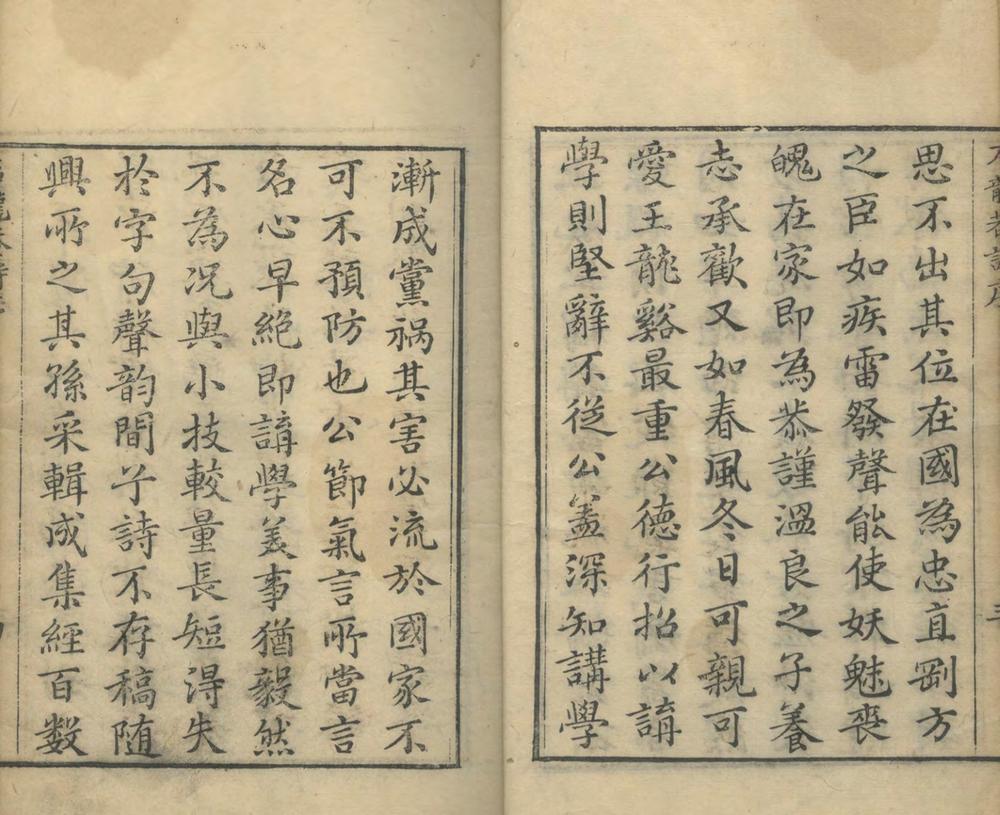 思不出其位在國為忠直剛方
之臣如疾雷發聲能使妖魅喪
魄在家即為恭謹溫良之子養
志承歡又如春風冬日可親可
愛王龍谿最重公德行招以講
學則堅辭不從公蓋深知講學
漸成黨禍其害必流於國家不
可不預防也公節氣言所當言
名心早絕即講學美事猶毅然
不為况與小技較量長短得失
於字句聲韵間乎詩不存稿随
興所之其孫采輯成集經百数